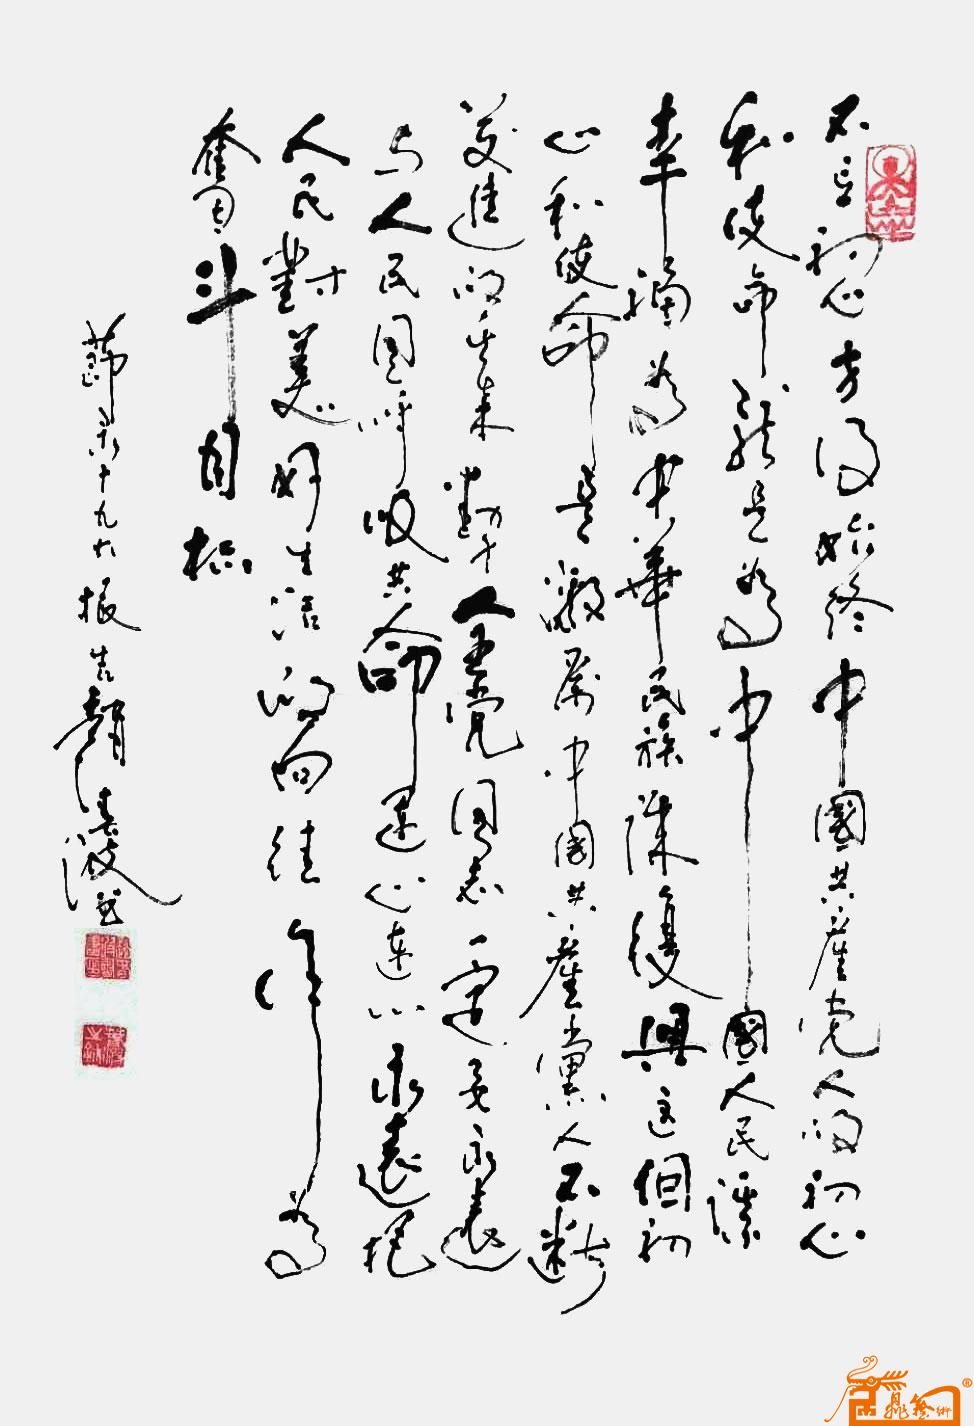 不忘初心方得始终中國共産党人的初心
和使命就是为中國人民謀
幸福为中華民族谋復興这個初
心和使命是激勵中国共產黨人不断
前進的根本動力全党同志一定要永遠
与人民同呼吸共命運心連心永遠把
人民對美好生活的向往作为
奮斗目标
節录十九大报告春波书